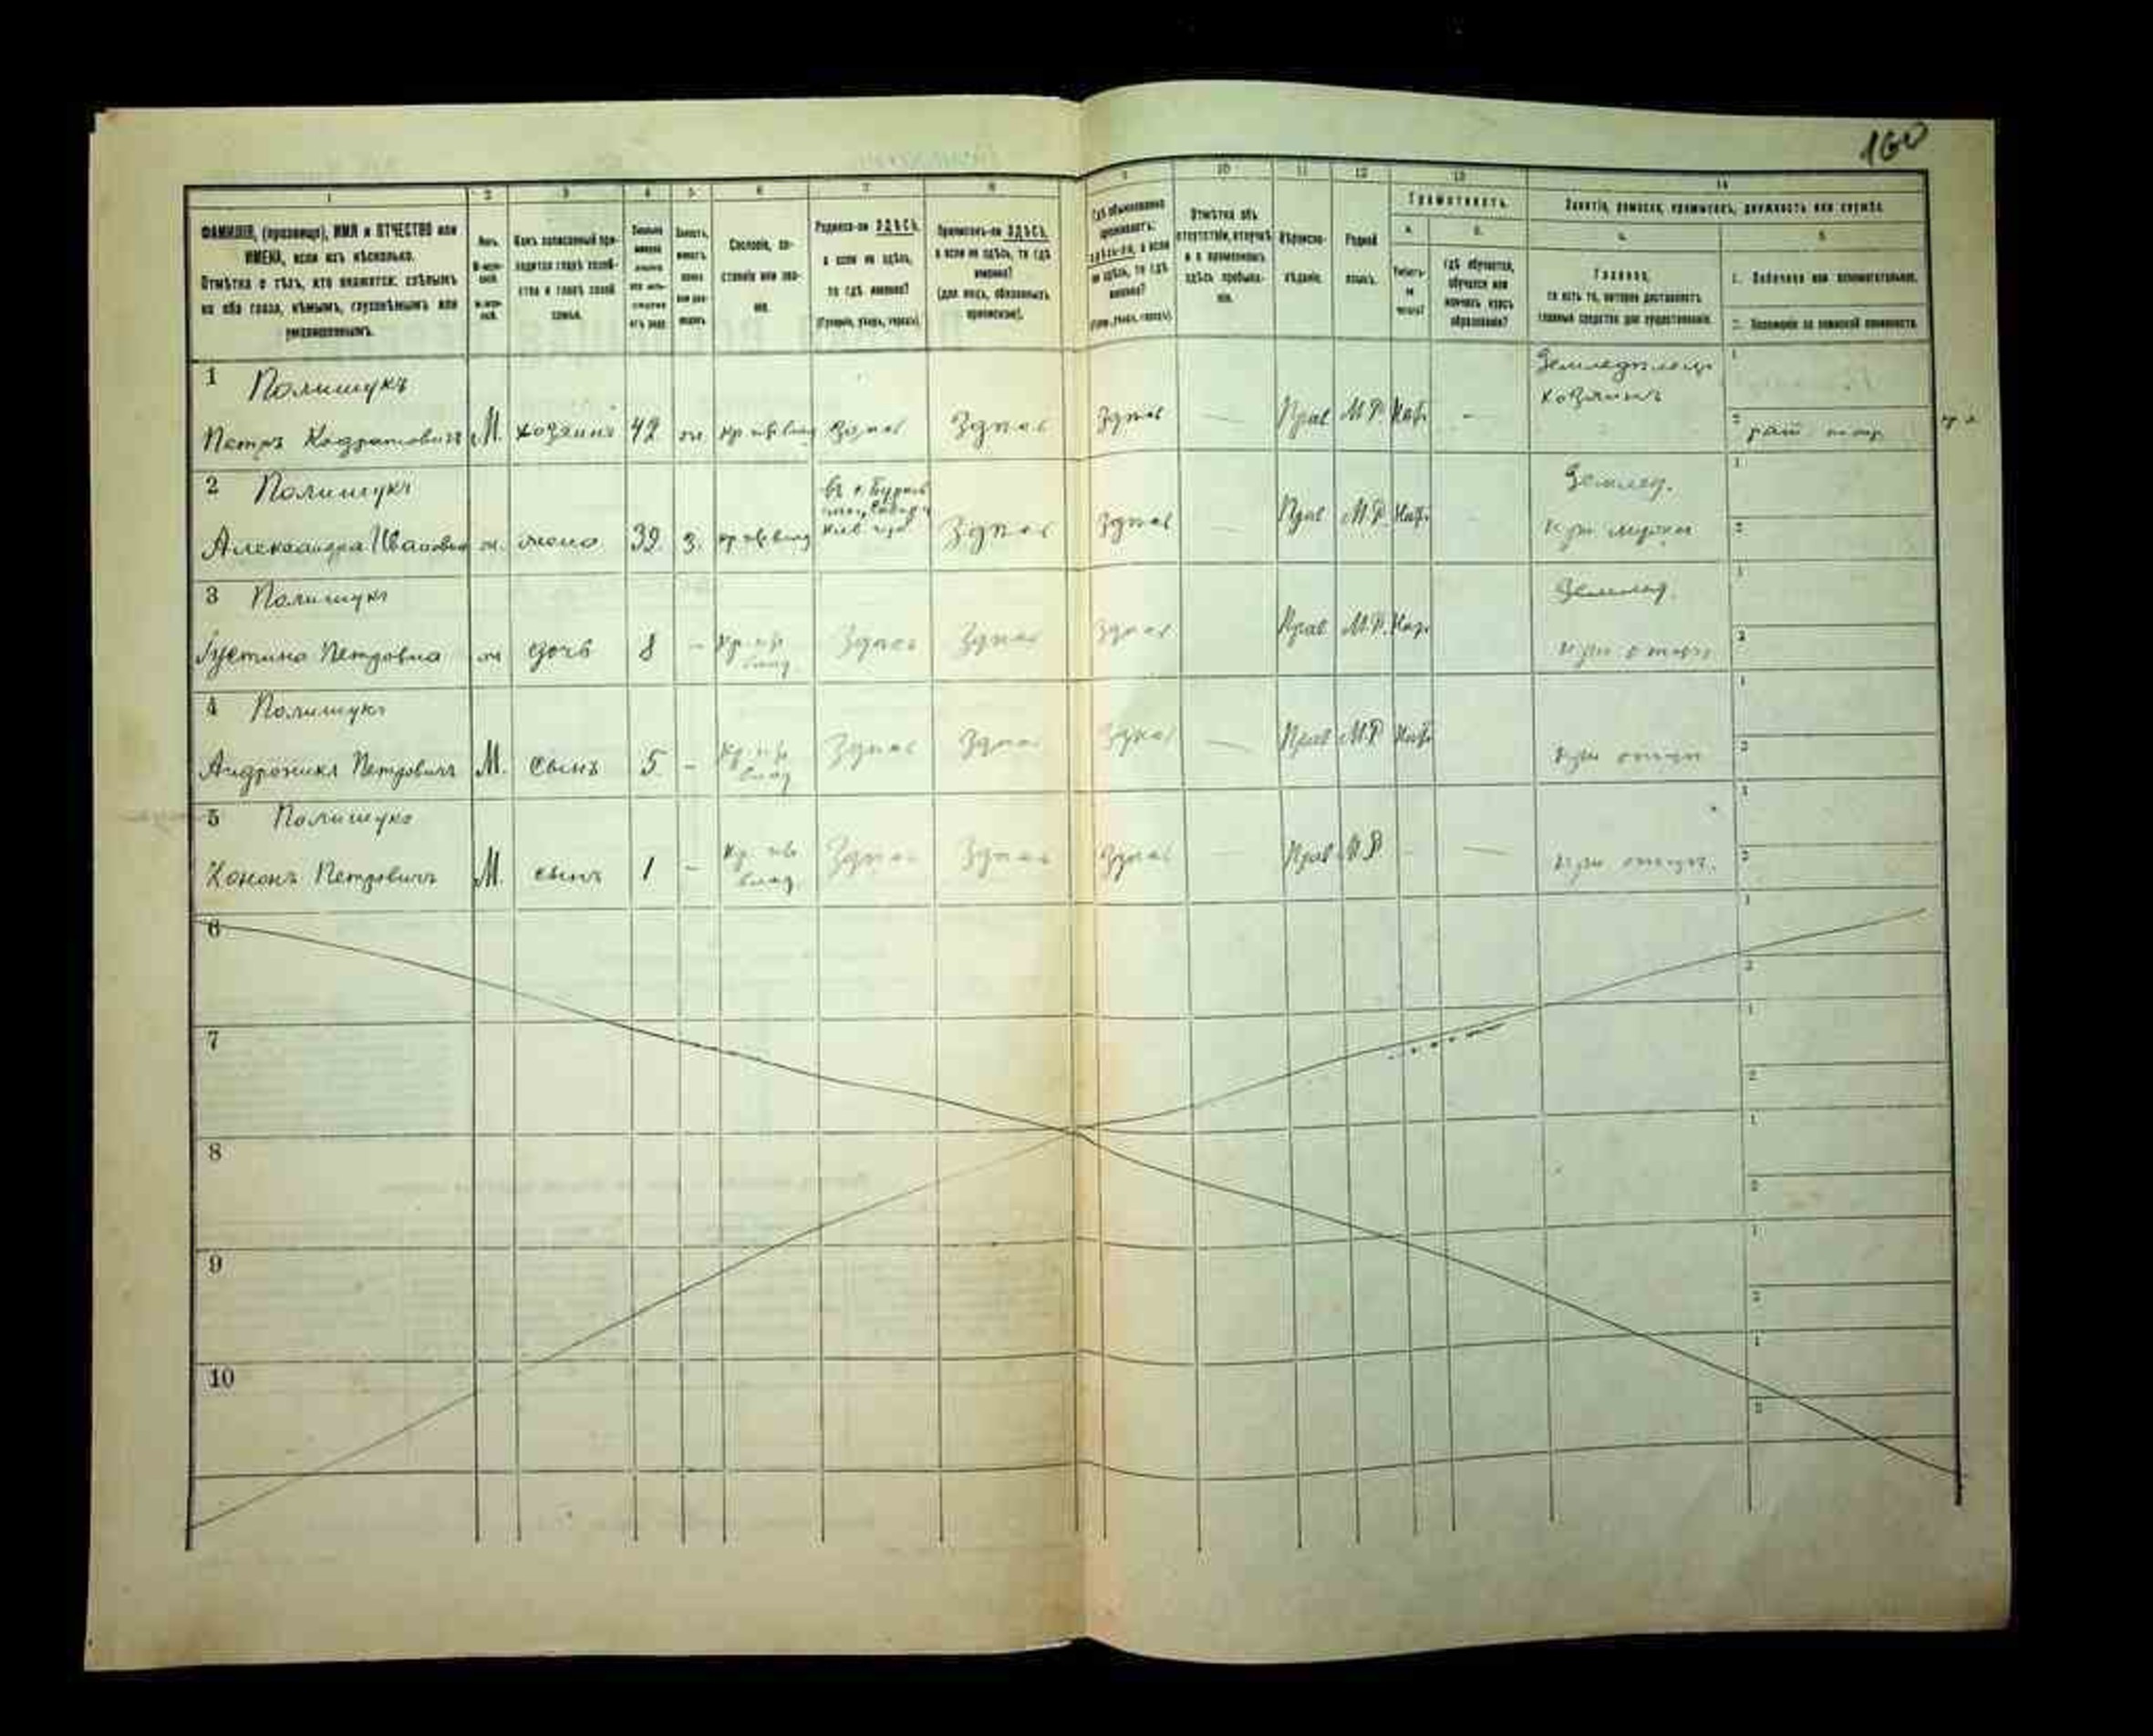 160
1 2 3 4 5 6 7 8 9 10 11 12 13 14
ФАМИЛІЯ, (прозвище), ИМЯ и ОТЧЕСТВО или
ИМЕНА, если ихъ нѣсколько.
Отмѣтка о тѣхъ, кто окажется: слѣпымъ
на оба глаза, нѣмымъ, глухонѣмымъ или
умалишеннымъ.
Полъ.
Какъ записанный при-
ходится главѣ хозяй-
ства и главѣ своей
семьи.
Сословіе, со-
стояніе или зва-
ніе.
Родился-ли ЗДѢСЬ,
а если не здѣсь,
то гдѣ именно?
(Губернія, уѣздъ, городъ).
Приписанъ-ли ЗДѢСЬ,
а если не здѣсь, то гдѣ
именно?
(для лицъ, обязанныхъ
припискою).
Гдѣ обыкновенно
проживаетъ:
здѣсь-ли, а если
не здѣсь, то гдѣ
именно?
Отмѣтка объ
отсутствіи, отлучкѣ
и о временномъ
здѣсь пребыва-
ніи.
Вѣроиспо-
вѣданіе.
Родной
языкъ.
Грамотность.
а. б.
Умѣетъ-
ли
читать?
гдѣ обучается,
обучался или
кончилъ курсъ
образованія?
Занятіе, ремесло, промыселъ, должность или служба.
а. б.
Главное,
то есть то, которое доставляетъ
главныя средства для существованія.
1. Побочное или вспомогательное.
2. Положеніе по воинской повинности.
1 Полищукъ
Петръ Кодратовичъ М. хозяинъ 42 ж Здѣсь Здѣсь Здѣсь — Прав М.Р. Нѣтъ - Земледѣлецъ
хозяинъ
2 Полищукъ
Александра Ивановна ж. жена 39 з. Здѣсь Здѣсь — Прав М.Р. Нѣтъ Землед.
при мужѣ
3 Полищукъ
Іустина Петровна ж дочь 8 - Здѣсь Здѣсь Здѣсь Прав М.Р. Нѣтъ Землед.
при отцѣ
4 Полищукъ
Андроникъ Петровичъ М. сынъ 5 - Здѣсь Здѣсь Здѣсь — Прав М.Р Нѣтъ при отцѣ
5 Полищукъ
Кононъ Петровичъ М. сынъ 1 - Здѣсь Здѣсь Здѣсь — Прав М.Р - — при отцѣ.
6
7
8
9
10